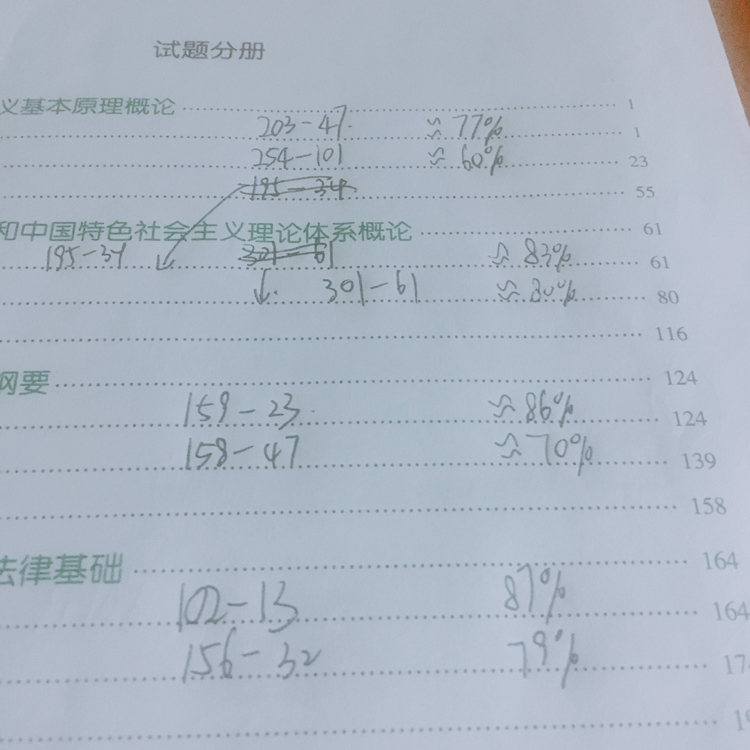 试题分册
义基本原理概论 1
203-47 ≈77% 1
254-101 ≈60% 23
195-34 55
和中国特色社会主义理论体系概论 61
195-34 301-61 ≈83% 61
301-61 ≈80% 80
116
纲要 124
159-23 ≈86% 124
158-47 ≈70% 139
158
法律基础 164
102-13 87% 164
156-32 79% 17
19